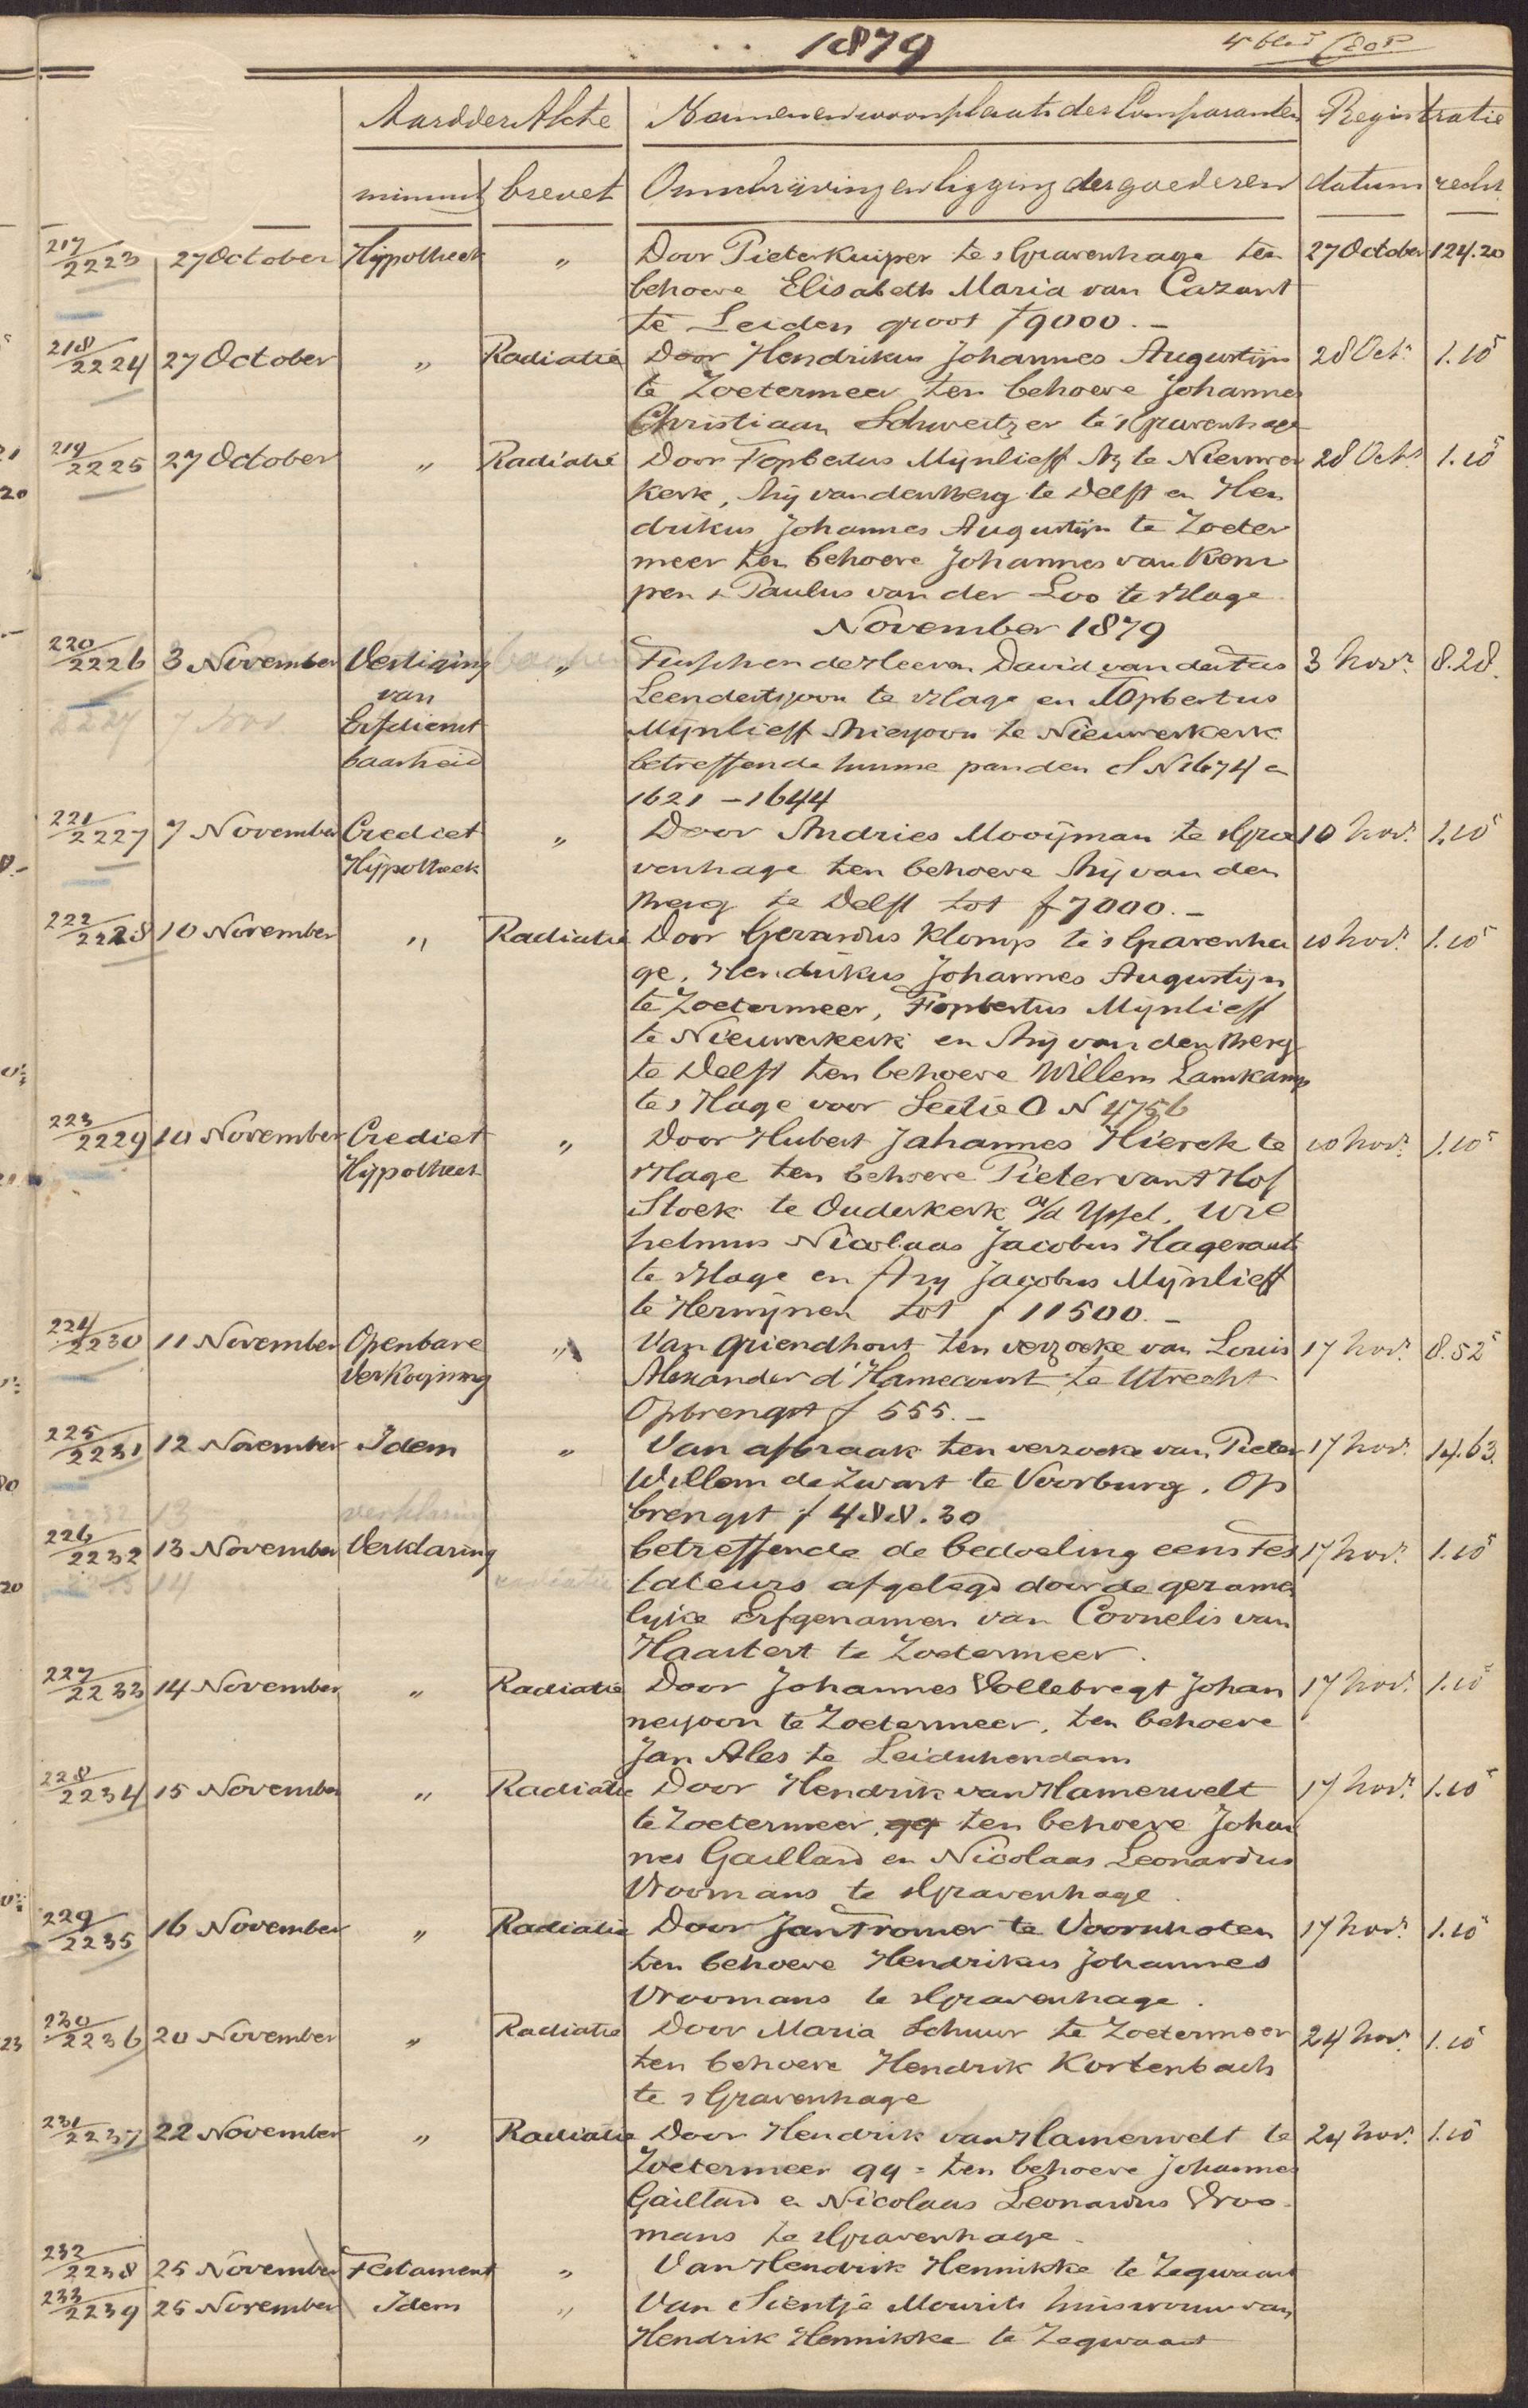 1879
4e blad
Aard der Akte Namen en woonplaats der Comparanten Registratie
minuut brevet Omschrijving en ligging der goederen datum recht
217/2223 27 October Hypotheek " Door Pieter Kuijper te sGravenhage ten 27 October 124.20
behoeve Elisabeth Maria van Cazant
te Leiden groot f 9000.-
218/2224 27 October " Radiatie Door Hendrikus Johannes Augustijn 28 Oct. 1.10⁵
te Zoetermeer ten behoeve Johannes
Christiaan Schweitzer te sGravenhage
219/2225 27 October " Radiatie Door Fopbertus Mijnlieff Az te Nieuwer 28 Oct. 1.10⁵
kerk, Arij van den Berg te Delft en Hen
drikus Johannes Augustijn te Zoeter
meer ten behoeve Johannes van Kem
pen & Paulus van der Loo te sHage
November 1879
220/2226 3 November Vestiging " Tusschen de Heeren David van der Tas 3 Nov. 8.28.
van Leendertszoon te sHage en Fopbertus
Erfdienst Mijnlieff Ariezoon te Nieuwerkerk
baarheid betreffende hunne panden S N 1674 en
1621 - 1644
221/2227 7 November Crediet " Door Andries Mooijman te sGra 10 Nov. 1.10⁵
Hypotheek venhage ten behoeve Arij van den
Berg te Delft tot f 7000.-
222/2228 10 November " Radiatie Door Gerardus Klomp te sGravenha 10 Nov. 1.10⁵
ge, Hendrikus Johannes Augustijn
te Zoetermeer, Fopbertus Mijnlieff
te Nieuwerkerk en Arij van den Berg
te Delft ten behoeve Willem Lamkamp
te sHage voor Sectie O N 4756
223/2229 10 November Crediet " Door Hubert Johannes Hierck te 10 Nov. 1.10⁵
Hypotheek sHage ten behoeve Pieter van't Hof
Stoek te Ouderkerk a/d Yssel, Wil
helmus Nicolaas Jacobus Hageraats
te sHage en Ary Jacobus Mijnlieff
te Herwijnen tot f 11500.-
224/2230 11 November Openbare " Van Griendhout ten verzoeke van Louis 17 Nov. 8.52⁵
Verkooping Alexander d'Hamecourt te Utrecht
Opbrengst f 555.-
225/2231 12 November Idem " Van afbraak ten verzoeke van Pieter 17 Nov. 14.63.
Willem de Zwart te Voorburg. Op
brengst f 488.30
226/2232 13 November Verklaring betreffende de bedoeling eens Tes 17 Nov. 1.10⁵
tateurs afgelegd door de gezamen
lyke Erfgenamen van Cornelis van
Haastert te Zoetermeer.
227/2233 14 November " Radiatie Door Johannes Vollebregt Johan 17 Nov. 1.10⁵
neszoon te Zoetermeer, ten behoeve
Jan Ales te Leidschendam
228/2234 15 November " Radiatie Door Hendrik van Hamerwelt 17 Nov. 1.10⁵
te Zoetermeer, qq ten behoeve Johan
nes Gaillard en Nicolaas Leonardus
Vroomans te sGravenhage.
229/2235 16 November " Radiatie Door Jan Tromer te Voorschoten 17 Nov. 1.10⁵
ten behoeve Hendrikus Johannes
Vroomans te sGravenhage.
230/2236 20 November " Radiatie Door Maria Schuur te Zoetermeer 24 Nov. 1.10⁵
ten behoeve Hendrik Kortenbach
te sGravenhage
231/2237 22 November " Radiatie Door Hendrik van Hamerwelt te 24 Nov. 1.10⁵
Zoetermeer qq = ten behoeve Johannes
Gaillard en Nicolaas Leonardus Vroo
mans te sGravenhage.
232/2238 25 November Testament " Van Hendrik Hennikke te Zegwaart
233/2239 25 November Idem " Van Sientje Mourits huisvrouw van
Hendrik Hennikke te Zegwaart